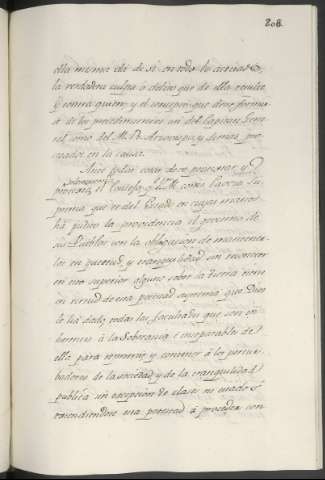 208.
ella misma dé de sí en todo lo actuado,
la verdadera culpa o delito que de ella resulte
y contra quien; y el concepto que deve formar-
se de los procedimientos así del Capitan Gene-
ral, como del M. Rdo. Arzobispo, y demas pro-
cesados en la causa.
Ante todas cosas deve
Sobreponer
presentes, el Consejo, q.e V.M. como Ley Su-
prema que es del Estado en cuyas manos
ha puesto la providencia el govierno de
sus Pueblos con la obligacion de mantener-
los en quietud, y tranquilidad, sin reconocer
en eso superior alguno sobre la tierra tiene
en virtud de esta potestad suprema que Dios
le há dado, todas las facultades que son in-
herentes á la Soberanía é inseparables de
ella para reprimir y contener á los pertur-
badores de la sociedad y de la tranquilidad
publica sin excepcion de clase, ni estado
extendiendose esta potestad á proceder con-